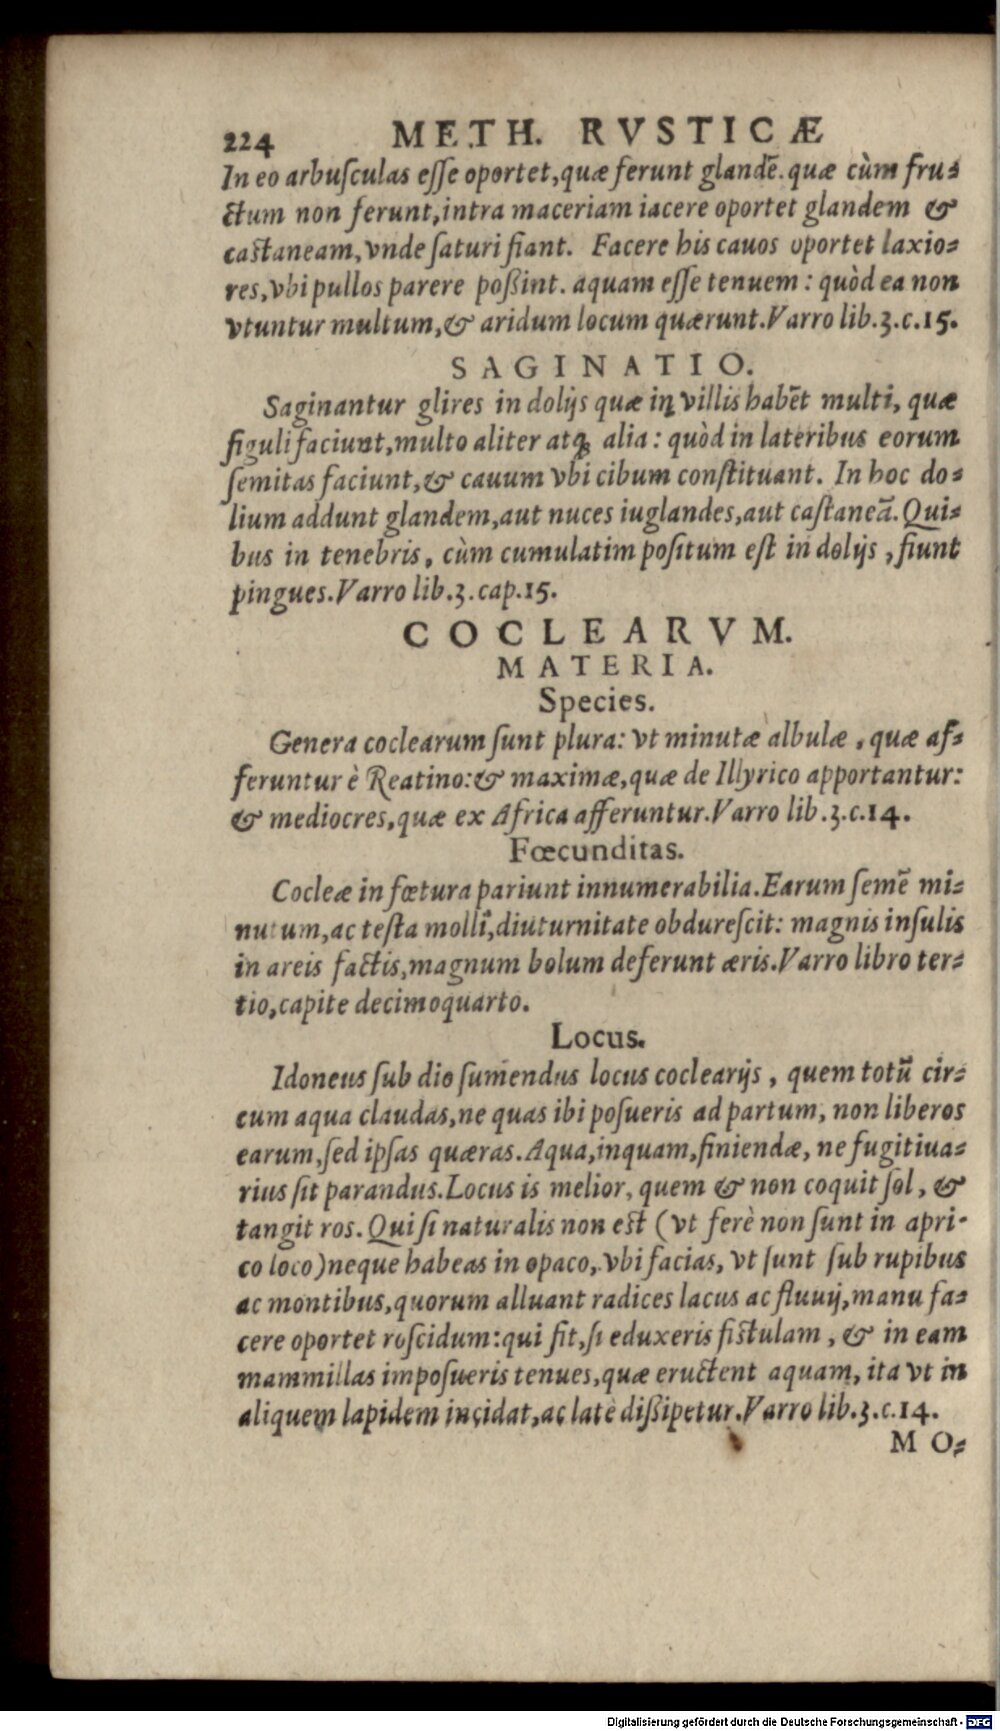 224 METH. RVSTICÆ
In eo arbuſculas eſſe oportet,quæ ferunt glandē.quæ cùm fru-
ctum non ferunt,intra maceriam iacere oportet glandem &
caſtaneam,vnde ſaturi fiant. Facere his cauos oportet laxio-
res,vbi pullos parere poßint. aquam eſſe tenuem : quòd ea non
vtuntur multum,& aridum locum quærunt.Varro lib.3.c.15.
SAGINATIO.
Saginantur glires in dolijs quæ in villis habēt multi, quæ
figuli faciunt,multo aliter atq; alia : quòd in lateribus eorum
ſemitas faciunt,& cauum vbi cibum conſtituant. In hoc do-
lium addunt glandem,aut nuces iuglandes,aut caſtaneā.Qui-
bus in tenebris, cùm cumulatim poſitum eſt in dolijs ,fiunt
pingues.Varro lib.3.cap.15.
COCLEARVM.
MATERIA.
Species.
Genera coclearum ſunt plura: vt minutæ albulæ , quæ af-
feruntur è Reatino:& maximæ,quæ de Illyrico apportantur:
& mediocres,quæ ex Africa afferuntur.Varro lib.3.c.14.
Fœcunditas.
Cocleæ in fœtura pariunt innumerabilia.Earum ſemē mi-
nutum,ac teſta molli,diuturnitate obdureſcit: magnis inſulis
in areis factis,magnum bolum deferunt æris.Varro libro ter-
tio,capite decimoquarto.
Locus.
Idoneus ſub dio ſumendus locus coclearijs , quem totū cir-
cum aqua claudas,ne quas ibi poſueris ad partum, non liberos
earum,ſed ipſas quæras.Aqua,inquam,finiendæ, ne fugitiua-
rius ſit parandus.Locus is melior, quem & non coquit ſol, &
tangit ros. Qui ſi naturalis non eſt (vt ferè non ſunt in apri-
co loco)neque habeas in opaco, vbi facias, vt ſunt ſub rupibus
ac montibus,quorum alluant radices lacus ac fluuij,manu fa-
cere oportet roſcidum:qui fit,ſi eduxeris fiſtulam , & in eam
mammillas impoſueris tenues,quæ eructent aquam, ita vt in
aliquem lapidem incidat,ac latè dißipetur.Varro lib.3.c.14.
MO-
Digitalisierung gefördert durch die Deutsche Forschungsgemeinschaft - DFG